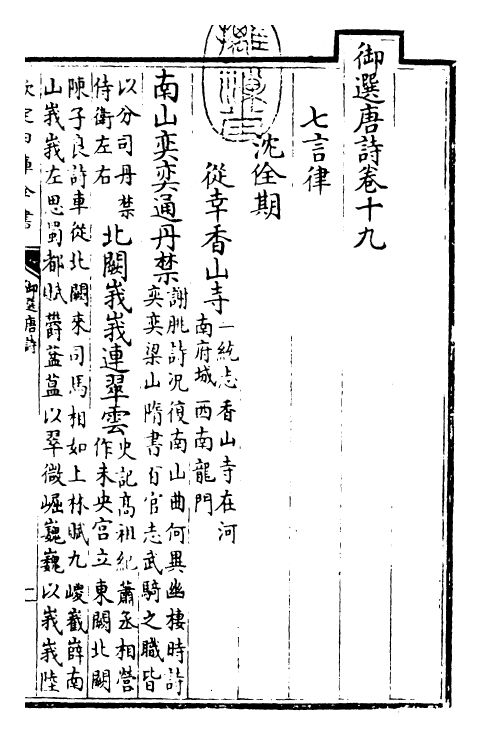 御選唐詩卷十九
七言律
沈佺期
從幸香山寺一統志香山寺在河
南府城西南龍門
南山奕奕通丹禁謝朓詩況復南山曲何異幽棲時詩
奕奕梁山隋書百官志武騎之職皆
以分司丹禁
侍衛左右
北闕峩峩連翠雲史記高祖紀蕭丞相營
作未央宫立東闕北闕
陳子良詩車從北闕來司馬相如上林賦九嵕巀嶭南
山峩峩左思蜀都賦鬱葐蒕以翠微崛巍巍以峩峩陸
欽定四庫全書
御選唐詩
一